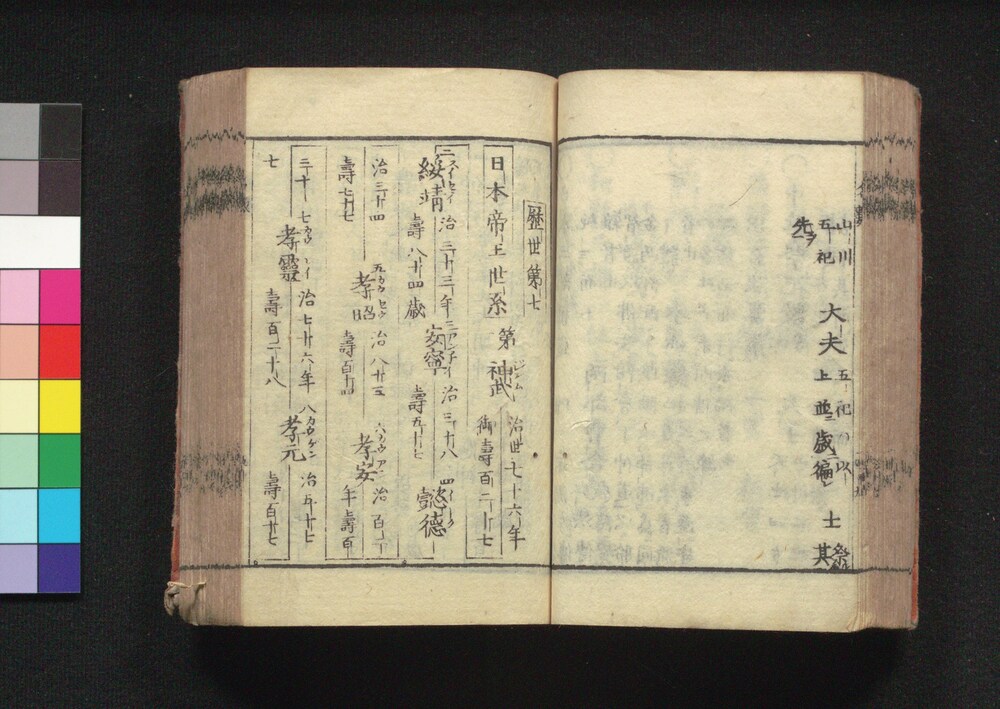 山川
五祀
先ヲ
大夫
五祀
上並歳徧
以
士
祭
其
歴世第七
日本帝王世系
第
神武
ジンム
治世七十六年
御壽百二十七
二
綏靖
治三十三年
壽八十四歳
三
安寧
治三十八
壽五十七
四
懿徳
治三十四
壽七十七
五
孝昭
治八十三
壽百十四
六
孝安
治百二
年壽百
三十七
七
孝霊
治七十六年
壽百二十八
八
孝元
治五十七
壽百十七